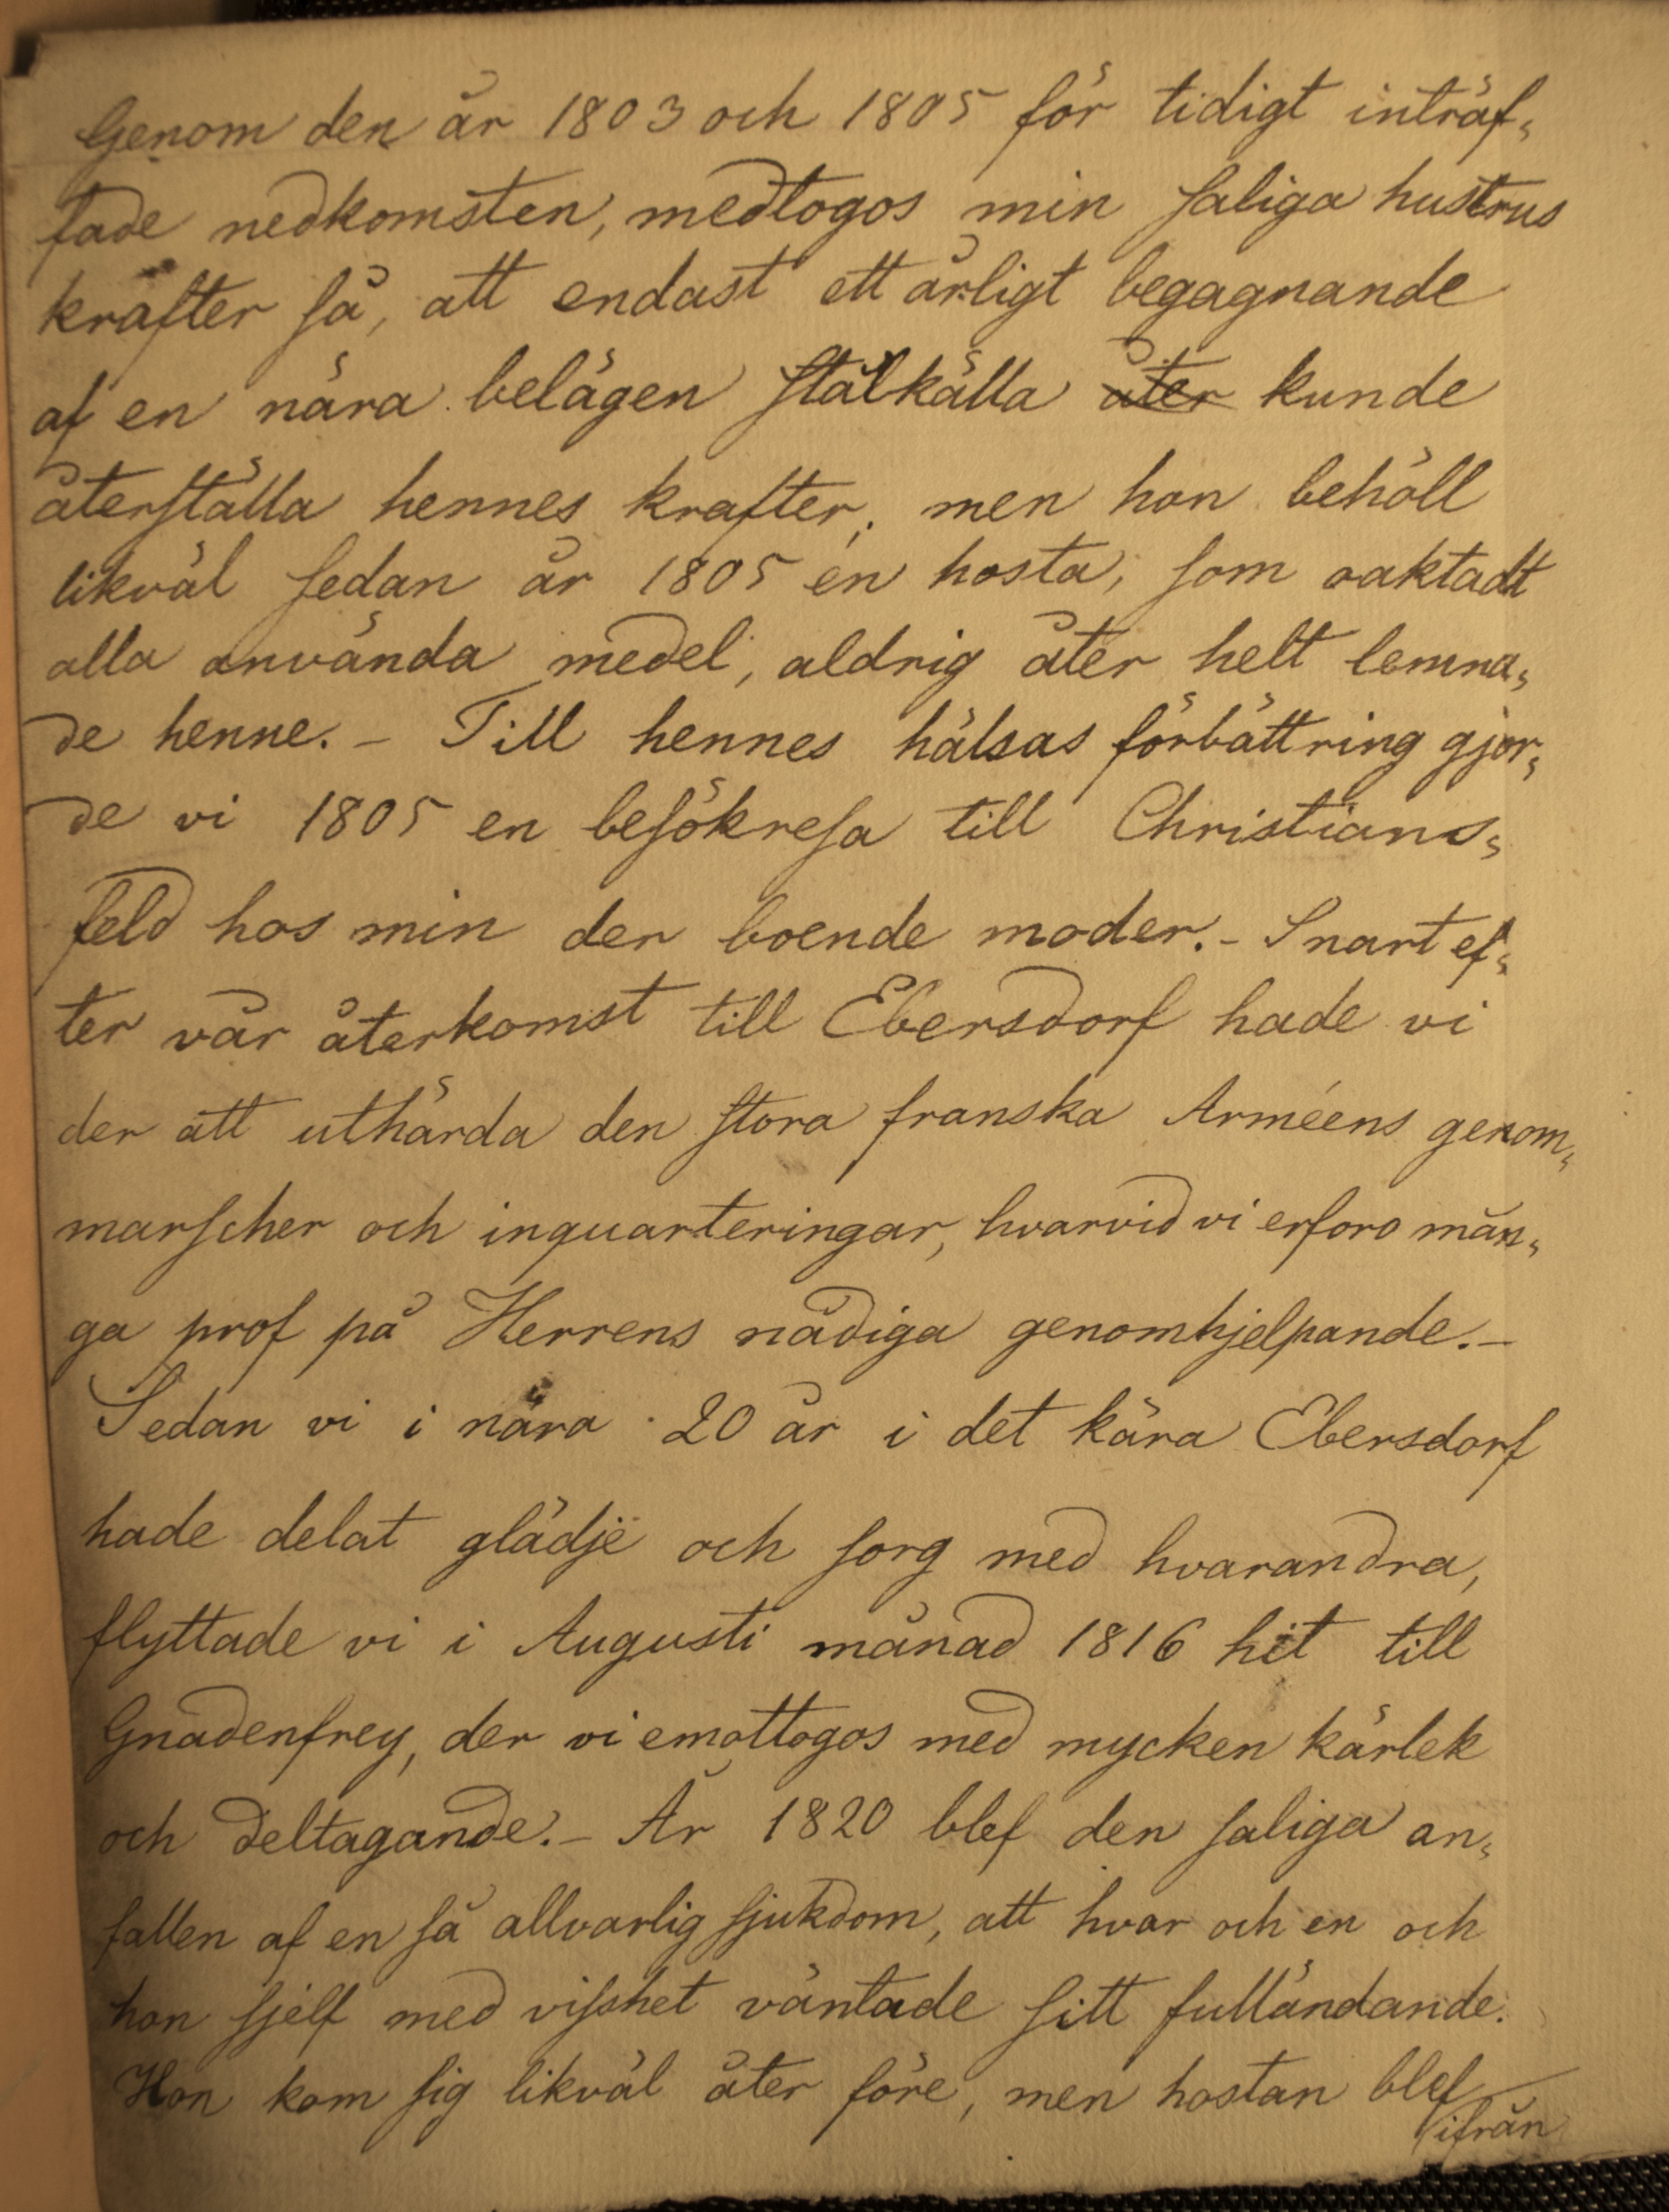 Genom den år 1803 och 1805 för tidigt inträf-
fade nedkomsten, medtogos min saliga hustrus
krafter så, att endast ett årligt begagnande
af en nära belägen stålkälla åter kunde
återställa hennes krafter, men hon behöll
likväl sedan år 1805 en hosta, som oaktadt
alla använda medel, aldrig åter helt lemna-
de henne. – Till hennes hälsas förbättring gjor-
de vi 1805 en besökresa till Christians-
feld hos min der boende moder. – Snart ef-
ter vår återkomst till Ebersdorf hade vi
der att uthärda den stora franska Arméens genom-
marscher och inquarteringar, hvarvid vi erforo mån-
ga prof på Herrens nådiga genomhjelpande. –
Sedan vi i nära 20 år i det kära Ebersdorf
hade delat glädje och sorg med hvarandra,
flyttade vi i Augusti månad 1816 hit till
Gnadenfrey, der vi emottogos med mycken kärlek
och deltagande. – År 1820 blef den saliga an-
fallen af en så allvarlig sjukdom, att hvar och en och
hon sjelf med visshet väntade sitt fulländande.
Hon kom sig likväl åter före, men hostan blef
ifrån